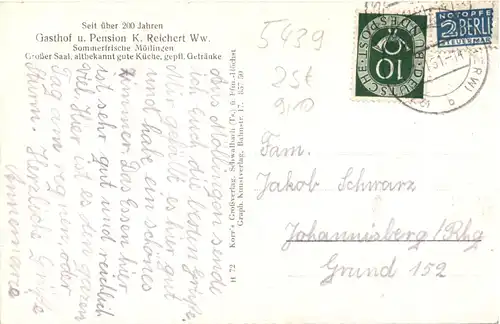 Seit über 200 Jahren
Gasthof u. Pension K. Reichert Ww.
Sommerfrische Möttingen
Großer Saal, altbekannt gute Küche, gepfl. Getränke
Aus Möttingen sende
ich euch die besten Grüße.
Mir gefällt es hier gut
und habe ein schönes
Zimmer. Das Essen hier
ist sehr gut und reichlich
viel. Hier ist es den ganzen
Tag am regnen, oder
Sturm. Herzliche Grüße
Annemarie
H 72
Korr's Großverlag, Schwalbach (Ts.) b. Ffm.-Höchst
Graph. Kunstverlag, Bahnstr. 17.
5439
DEUTSCHE BUNDESPOST
10
NOTOPFER
2 BERLIN
STEUERMARKE
Fam.
Jakob Schwarz
Johannisberg/Rhg
Grund 152